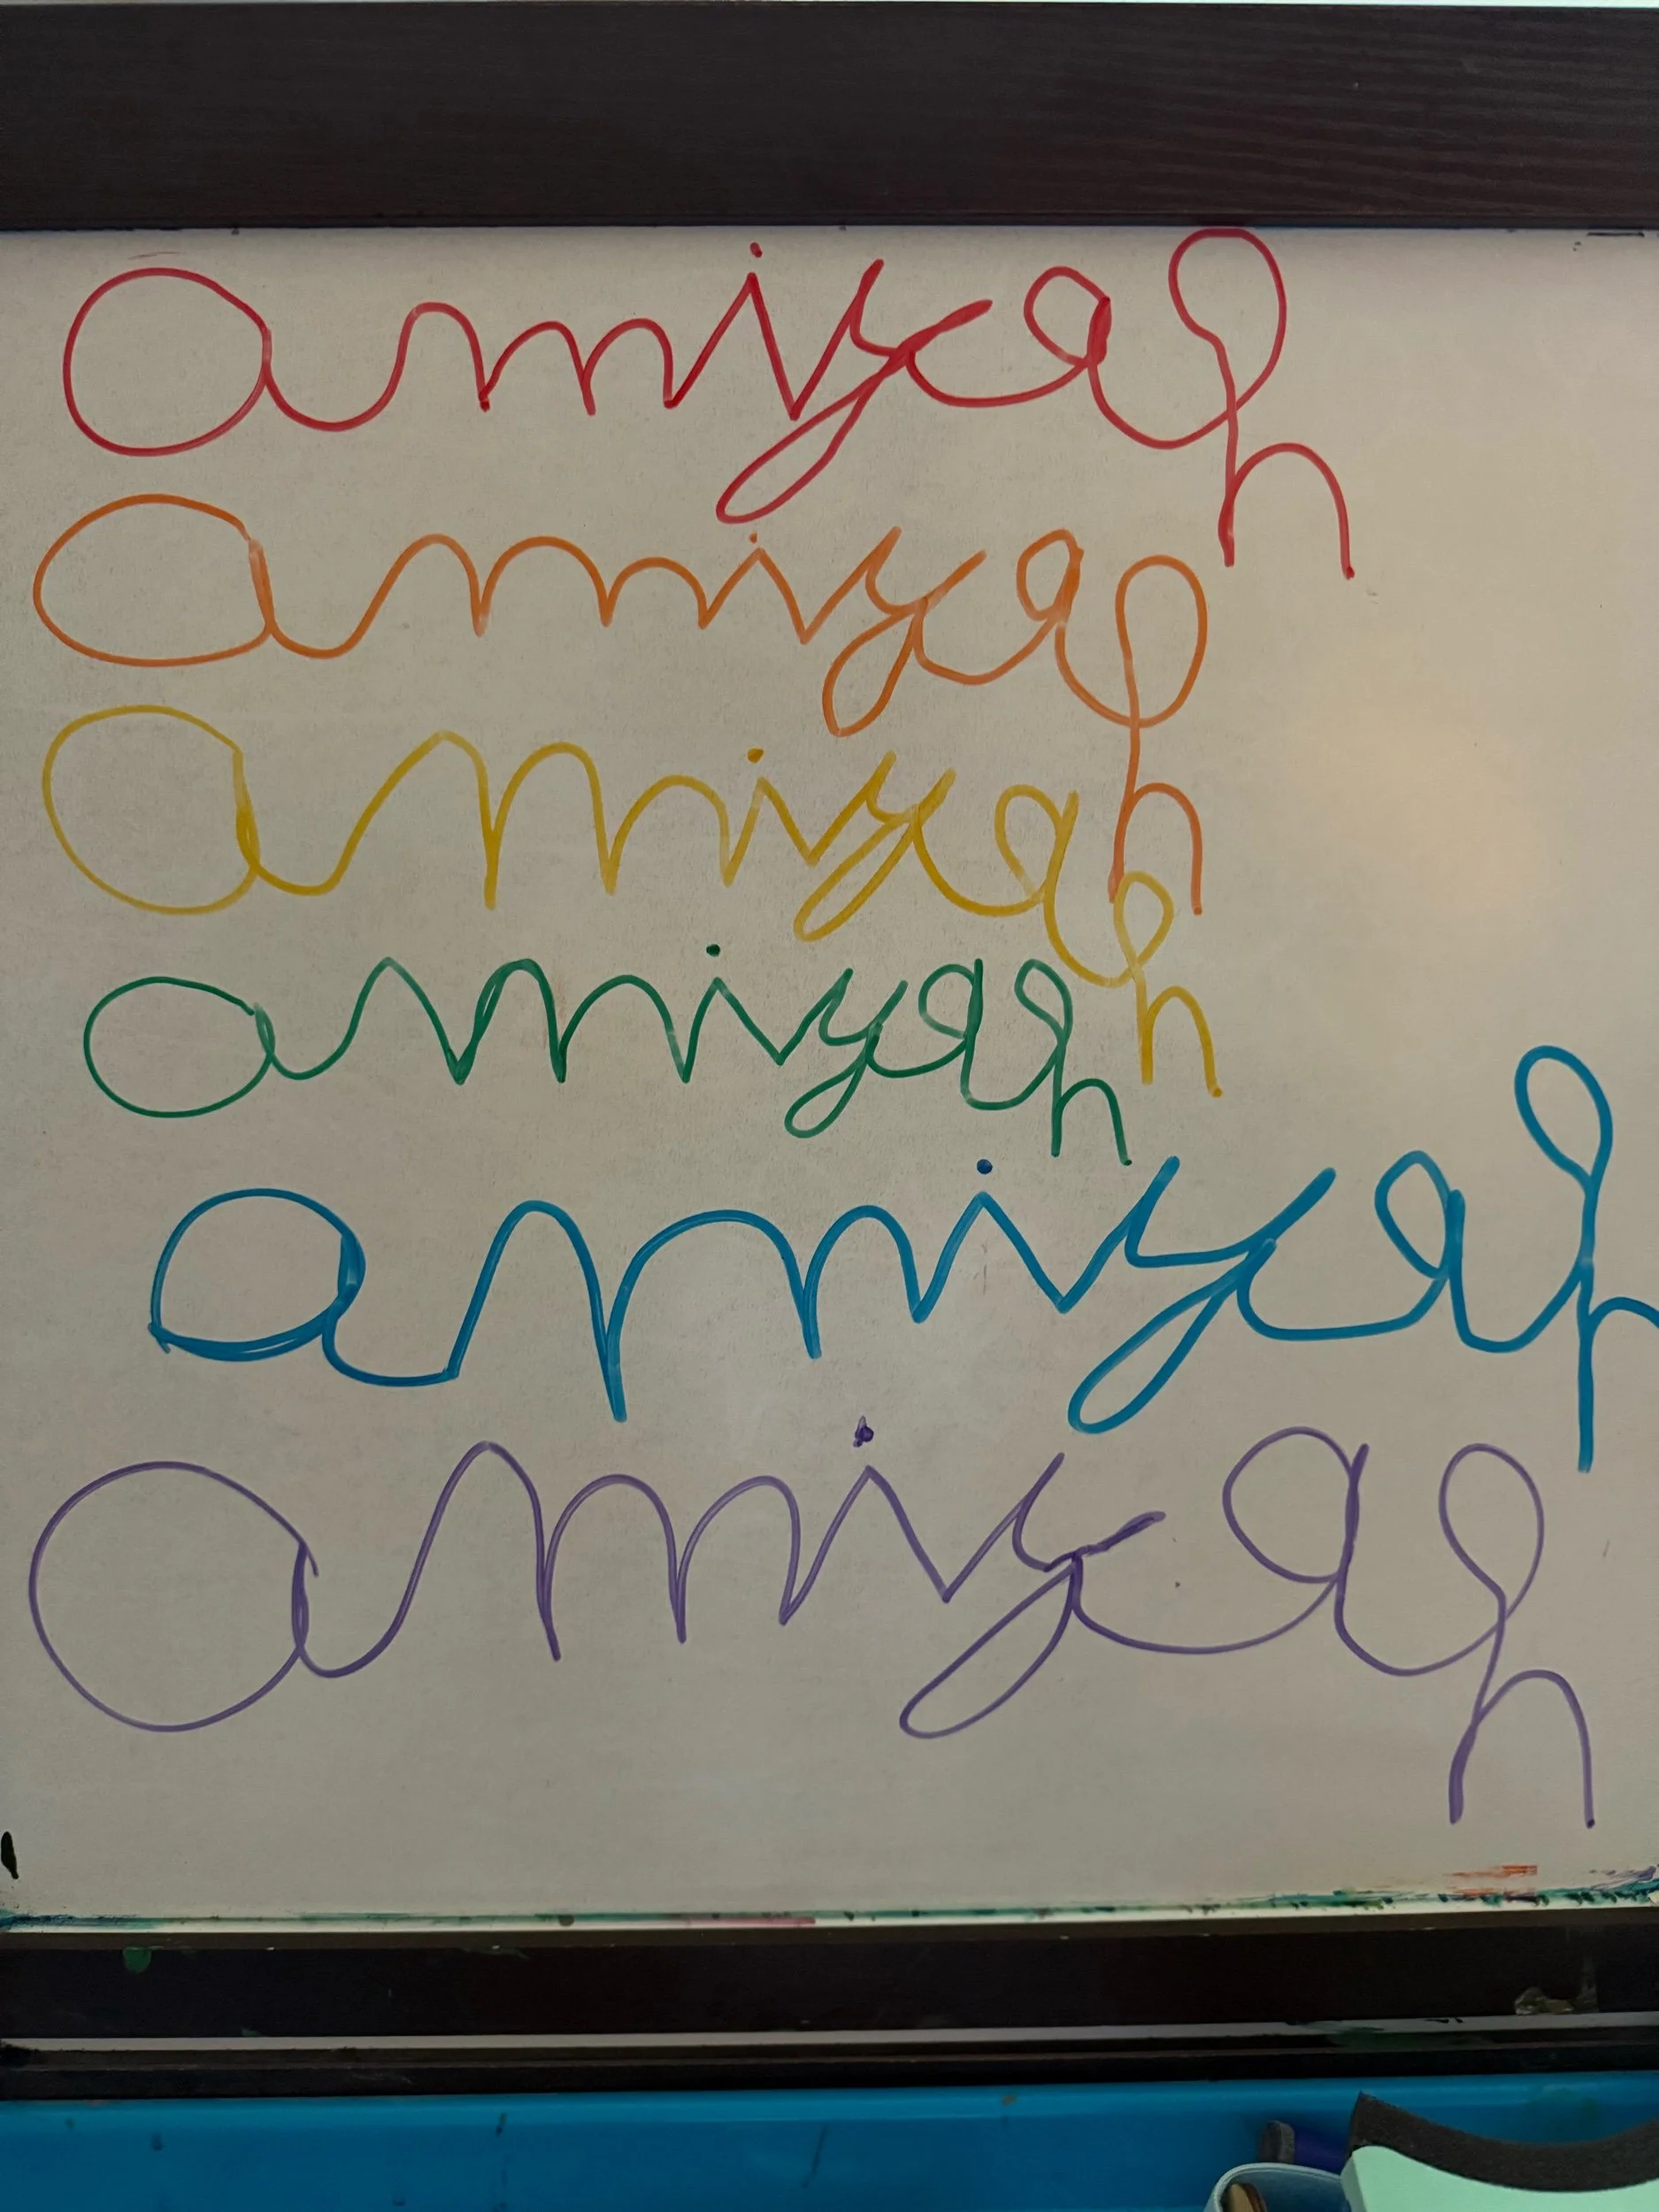 amiyah
amiyah
amiyah
amiyah
amiyah
amiyah